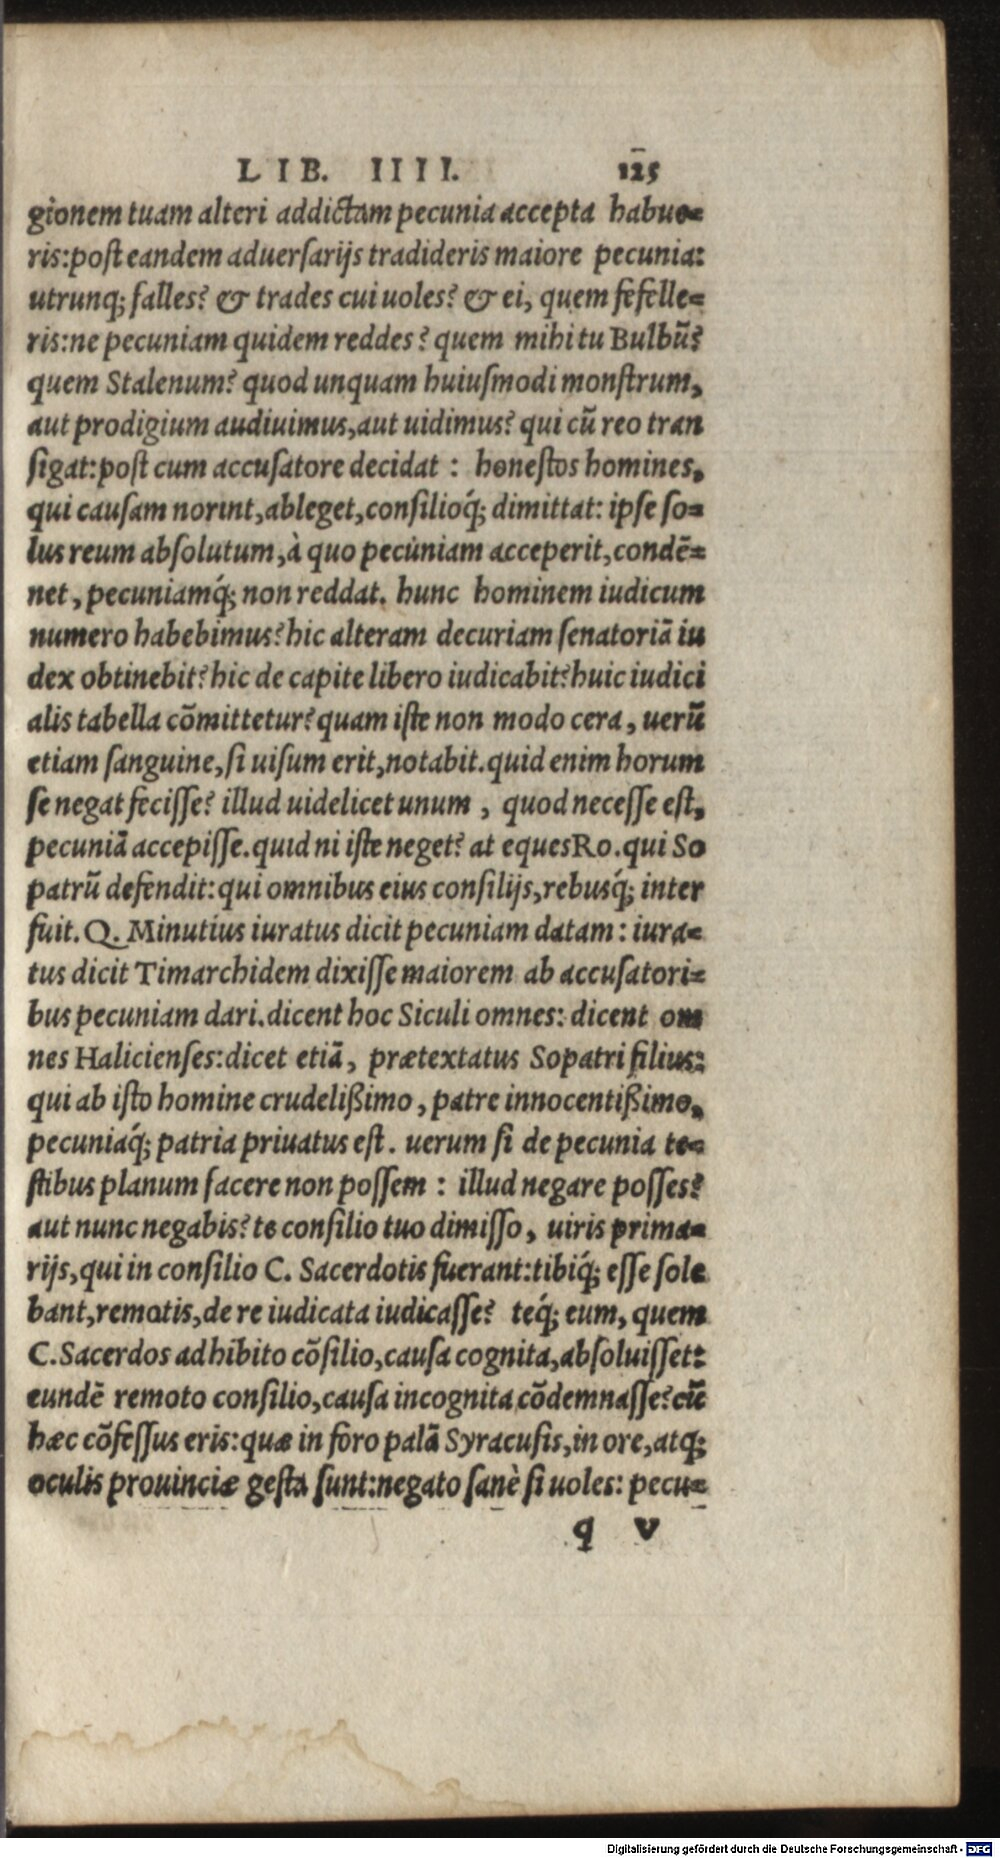 LIB. IIII. 125
gionem tuam alteri addictam pecunia accepta habue-
ris:post eandem aduersarijs tradideris maiore pecunia:
utrunq; falles? & trades cui uoles? & ei, quem fefelle-
ris:ne pecuniam quidem reddes? quem mihi tu Bulbũ?
quem Stalenum? quod unquam huiusmodi monstrum,
aut prodigium audiuimus,aut uidimus? qui cũ reo tran
sigat:post cum accusatore decidat : honestos homines,
qui causam norint,ableget,consilioq́; dimittat: ipse so-
lus reum absolutum,à quo pecuniam acceperit,condẽ-
net, pecuniamq́; non reddat. hunc hominem iudicum
numero habebimus?hic alteram decuriam senatoriã iu
dex obtinebit?hic de capite libero iudicabit?huic iudici
alis tabella cõmittetur?quam iste non modo cera, uerũ
etiam sanguine,si uisum erit,notabit.quid enim horum
se negat fecisse? illud uidelicet unum , quod necesse est,
pecuniã accepisse.quid ni iste neget? at equesRo.qui So
patrũ defendit:qui omnibus eius consilijs,rebusq́; inter
fuit. Q. Minutius iuratus dicit pecuniam datam: iura-
tus dicit Timarchidem dixisse maiorem ab accusatori-
bus pecuniam dari.dicent hoc Siculi omnes: dicent om
nes Halicienses:dicet etiã, prætextatus Sopatri filius:
qui ab isto homine crudelißimo, patre innocentißimo,
pecuniaq́; patria priuatus est. uerum si de pecunia te-
stibus planum facere non possem : illud negare posses?
aut nunc negabis?te consilio tuo dimisso, uiris prima-
rijs,qui in consilio C. Sacerdotis fuerant:tibiq́; esse sole
bant,remotis,de re iudicata iudicasse? teq́; eum, quem
C.Sacerdos adhibito cõsilio,causa cognita,absoluisset:
eundẽ remoto consilio,causa incognita cõdemnasse?cũ
hæc cõfessus eris:quæ in foro palã Syracusis,in ore,atq;
oculis prouinciæ gesta sunt:negato sanè si uoles: pecu-
q v
Digitalisierung gefördert durch die Deutsche Forschungsgemeinschaft - DFG